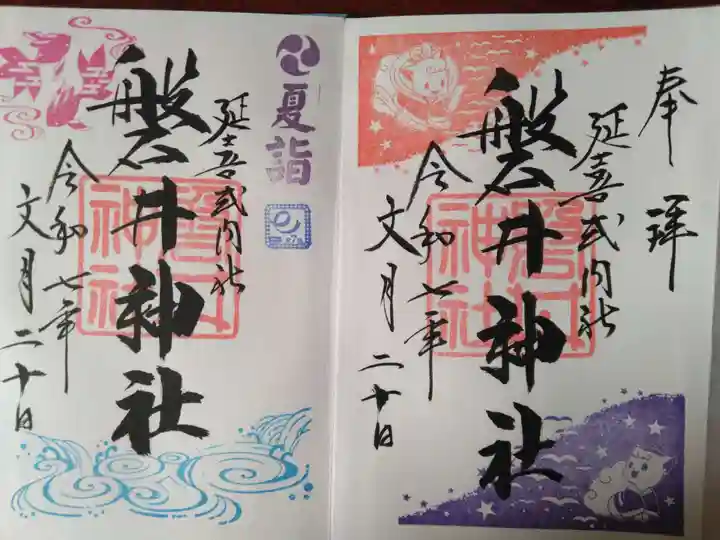 奉拝
延喜式内社
磐井神社
令和七年
文月二十日
夏詣
延喜式内社
磐井神社
令和七年
文月二十日
磐井神社
磐井神社